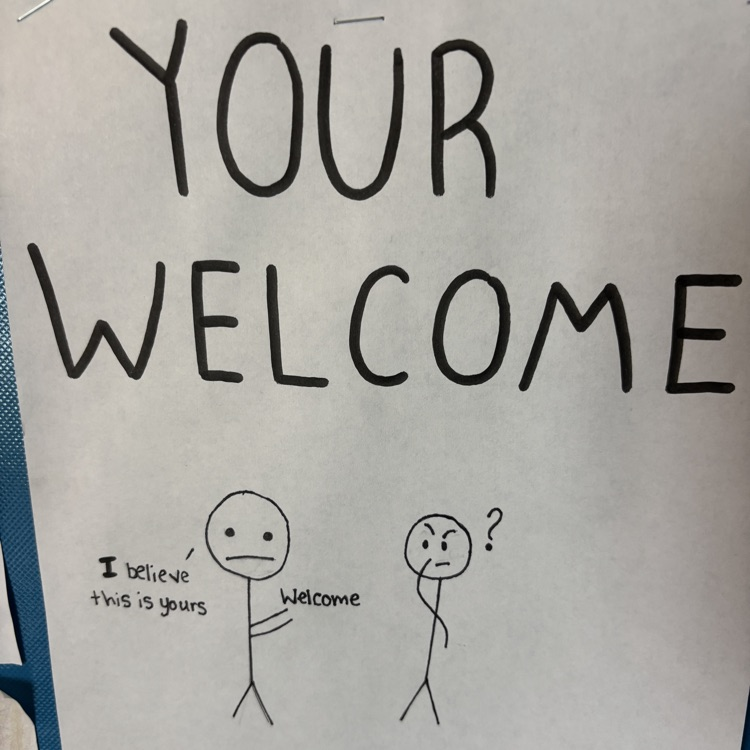 YOUR
WELCOME
?
I believe
this is yours
Welcome